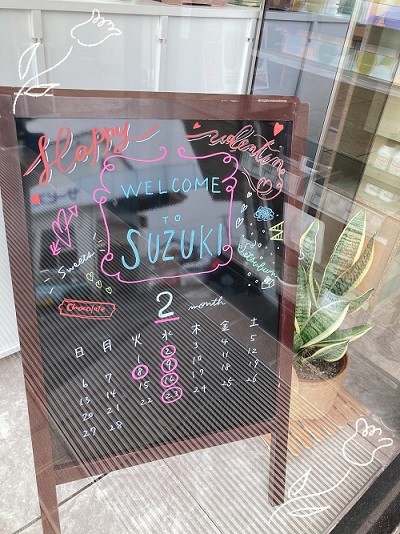 Happy
Valentine
WELCOME
TO
SUZUKI
Sweets
Chocolate
2 month
日 月 火 水 木 金 土
1 2 3 4 5
6 7 8 9 10 11 12
13 14 15 16 17 18 19
20 21 22 23 24 25 26
27 28